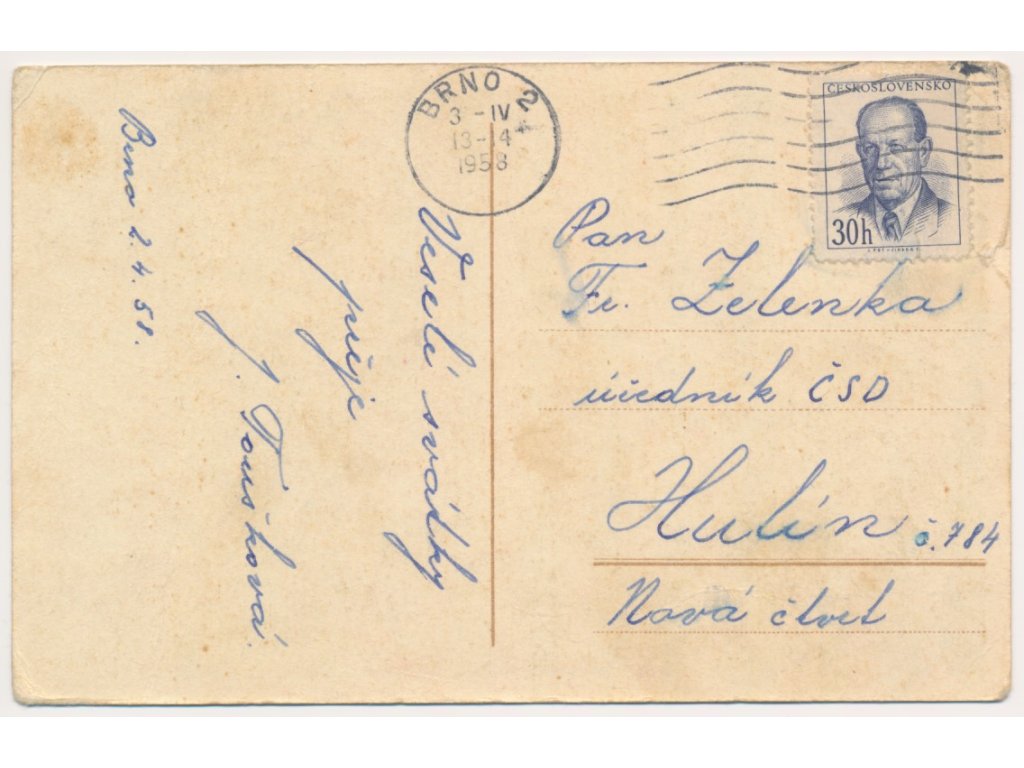 Brno 2. 4. 58.
Veselé svátky
přeje
J. Toušková.
BRNO 2
3 -IV
13-4
1958
ČESKOSLOVENSKO
30h
Pan
Fr. Zelenka
úředník ČSD
Hulín č. 784
Nová čtvrť